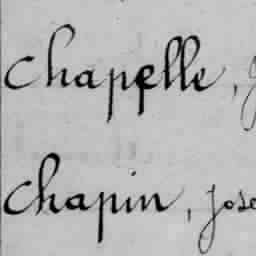 Chapelle, J
Chapin, Jose